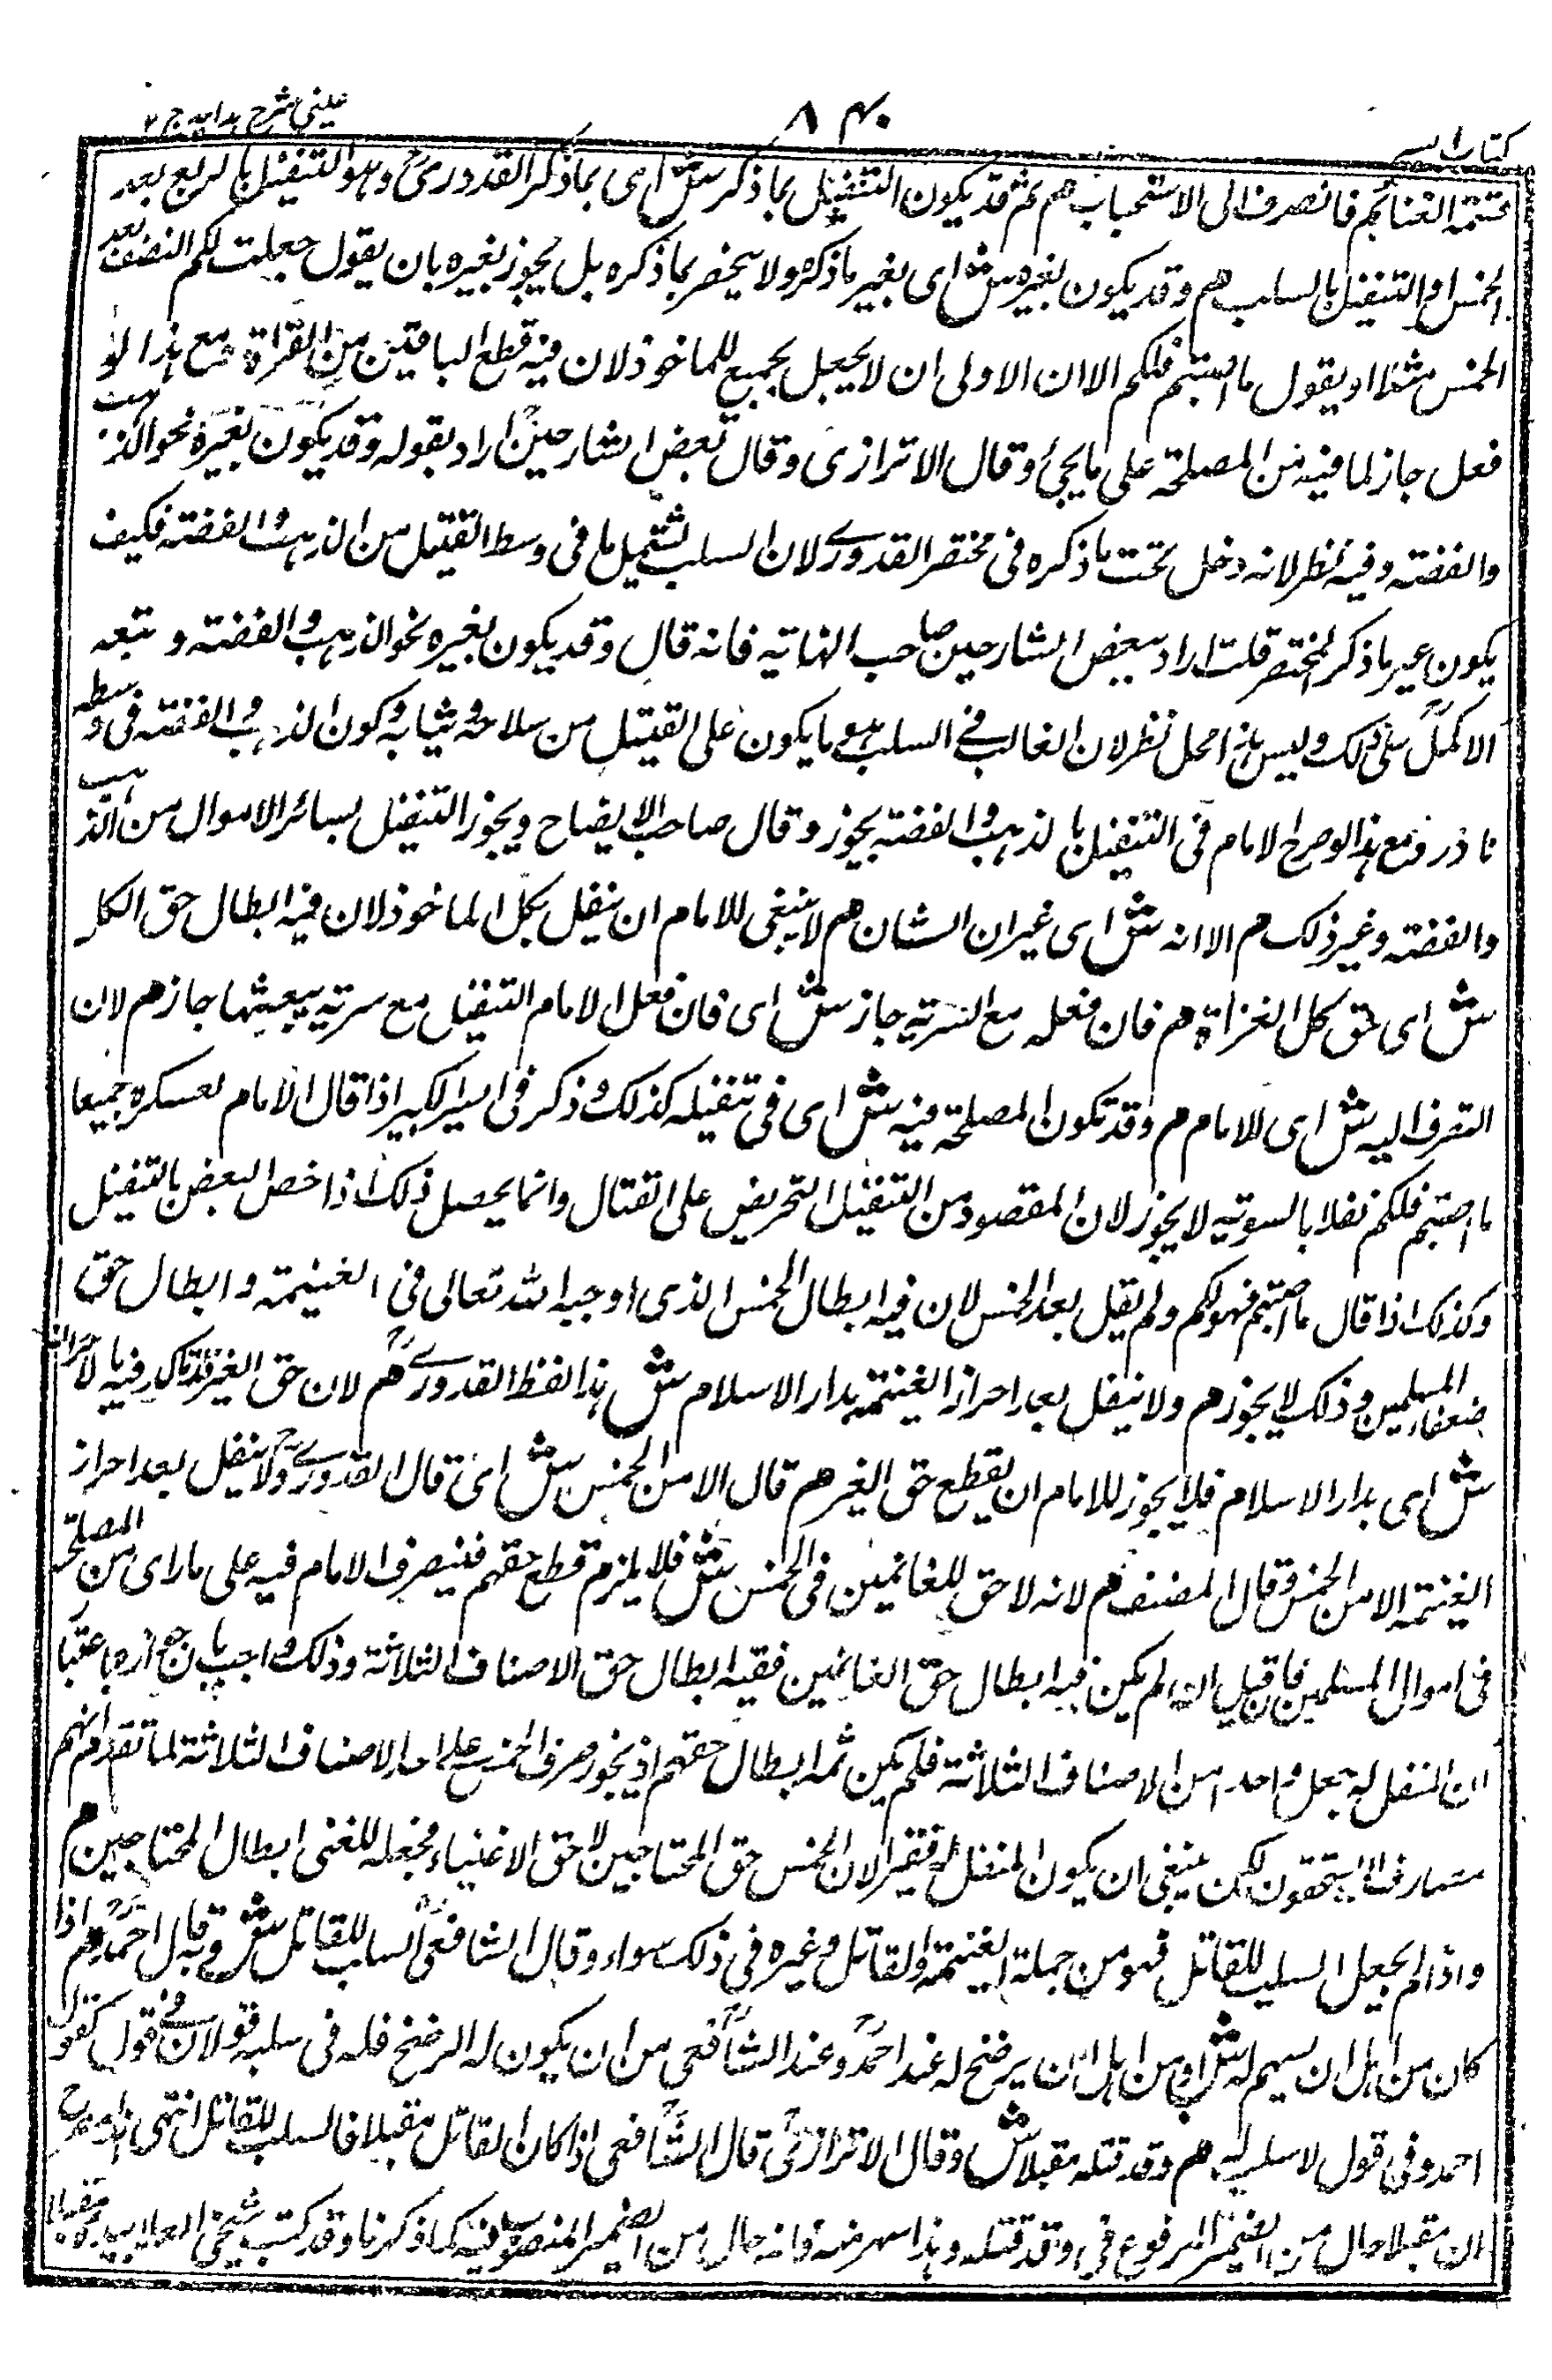 كتاب السير
٨٤٠
عيني شرح هدايه ج ٢
قسمة الغنائم فانصرف الى الاستحباب هم ثم قد يكون التنفيل بما ذكر ش اى بما ذكر القدورى وهو التنفيل بالربع بعد
الخمس او التنفيل بالسلب هم وقد يكون بغيره ش اى بغير ما ذكره ولا ينحصر بما ذكره بل يجوز بغيره بان يقول جعلت لكم النصف بعد
الخمس مثلا او يقول ما اصبتم فلكم الا ان الاولى ان لا يجعل بجميع للماخوذ لان فيه قطع الباقين من القراة ومع هذا لو
فعل جاز لما فيه من المصلحة على ما يجئ وقال الاترازى وقال بعض الشارحين اراد بقوله وقد يكون بغيره نحو الذهب
والفضة وفيه نظر لانه دخل تحت ما ذكره فى مختصر القدورے لان السلب يشتمل ما فى وسط القتيل من الذهب والفضة فكيف
يكون غير ما ذكر المختصر قلت اراد ببعض الشارحين صاحب النهاية فانه قال وقد يكون بغيره نحو الذهب والفضة وتبعه
الاكمل على ذلك وليس هذا محل نظر لان الغالب فى السلب هو ما يكون على القتيل من سلاحه وثيابه وكون الذهب والفضة فى وسطه
نادر ومع هذا لو صرح الامام فى التنفيل بالذهب والفضة يجوز وقال صاحب الايضاح ويجوز التنفيل بسائر الاموال من الذهب
والفضة وغير ذلك م الا انه ش اى غير ان الشان هم لا ينبغى للامام ان ينفل بكل الماخوذ لان فيه ابطال حق الكل
ش اى حق كل الغزاة هم فان فعله مع السرية جاز ش اى فان فعل الامام التنفيل مع سرية يبعثها جاز هم لان
التصرف اليه ش اى للامام م وقد تكون المصلحة فيه ش اى فى تنفيله كذلك وذكر فى السير الكبير اذا قال الامام لعسكره جميعا
ما اصبتم فلكم نفلا بالسوية لا يجوز لان المقصود من التنفيل التحريض على القتال وانما يحصل ذلك اذا خص البعض بالتنفيل
وكذلك اذا قال ما اصبتم فهو لكم ولم يقل بعد الخمس لان فيه ابطال الخمس الذى اوجبه الله تعالى فى الغنيمة وابطال حق
ضعفاء المسلمين وذلك لا يجوز هم ولا ينفل بعد احراز الغنيمة بدار الاسلام ش هذا لفظ القدورے هم لان حق الغير قد تاكد فيه بالاحراز
ش اى بدار الاسلام فلا يجوز للامام ان يقطع حق الغير هم قال الا من الخمس ش اى قال القدورے ولا ينفل بعد احراز
الغنيمة الا من الخمس وقال المصنف هم لانه لا حق للغانمين فى الخمس ش فلا يلزم قطع حقهم فيتصرف الامام فيه على ما راى من المصلحة
فى اموال المسلمين فان قيل ان لم يكن فيه ابطال حق الغانمين ففيه ابطال حق الاصناف الثلاثة وذلك واجب بان جوازه باعتبار
ان المنفل له جعل واحدا من الاصناف الثلاثة فلم يكن ثمه ابطال حقهم اذ يجوز صرف الخمس على احد الاصناف الثلاثة لما تقدم انهم
مصارف لا يستحقون لكن ينبغى ان يكون المنفل له فقيرا لان الخمس حق المحتاجين لا حق الاغنياء فجعله للغنى ابطال المحتاجين م
واذا لم يجعل السلب للقاتل فهو من جملة الغنيمة والقاتل وغيره فى ذلك سواء وقال الشافعى السلب للقاتل ش وبه قال احمد هم اذا
كان من اهل ان يسهم له ش او من اهل ان يرضخ له عند احمد وعند الشافعى من ان يكون له الرضخ فله فى سلبه قولان فى قول كقول
احمد وفى قول لا سلب له هم وقد قتله مقبلا ش وقال الاترازى قال الشافعى اذا كان القاتل مقبلا فالسلب للقاتل انتهى
ان مقبلا حال من الضمير المرفوع فى وقد قتله وهذا سهو منه وانه حال من الضمير المنصوب فيه كما ذكرنا وقد كتب شيخى العلاء